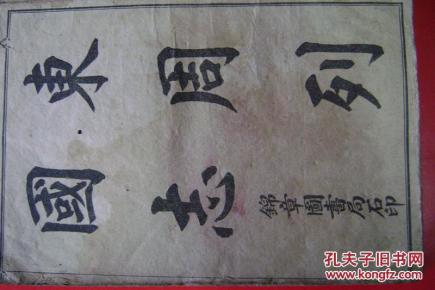 東周列
國志
錦章圖書局石印
孔夫子旧书网
www.kongfz.com